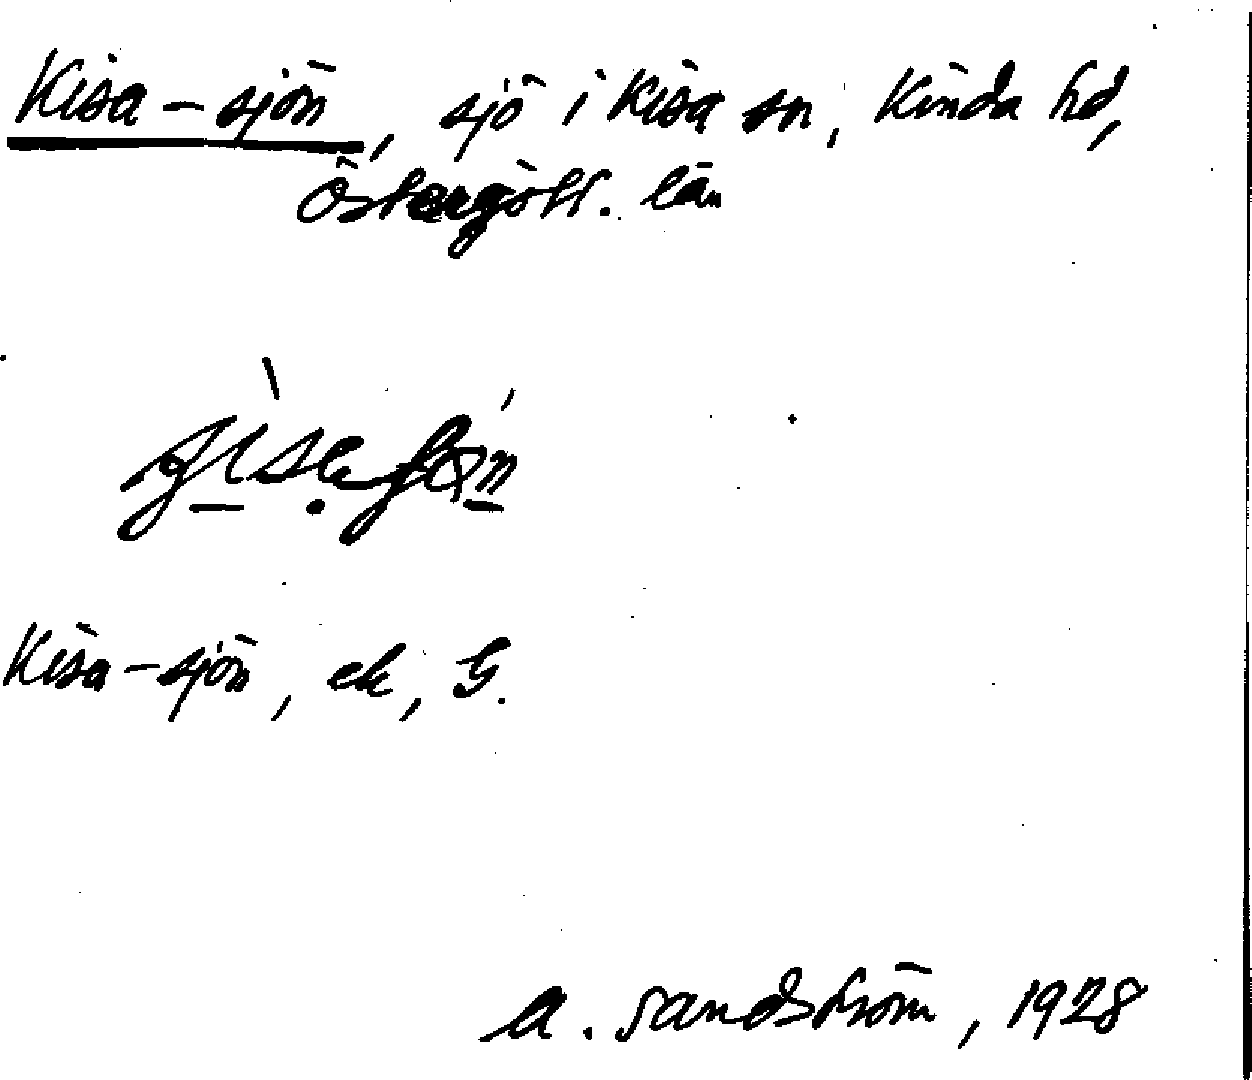 Kisa-sjön, sjö i Kisa sn, Kinda hd,
Östergötl. län
Kisa-sjön, ek, G.
A. Sandström, 1928